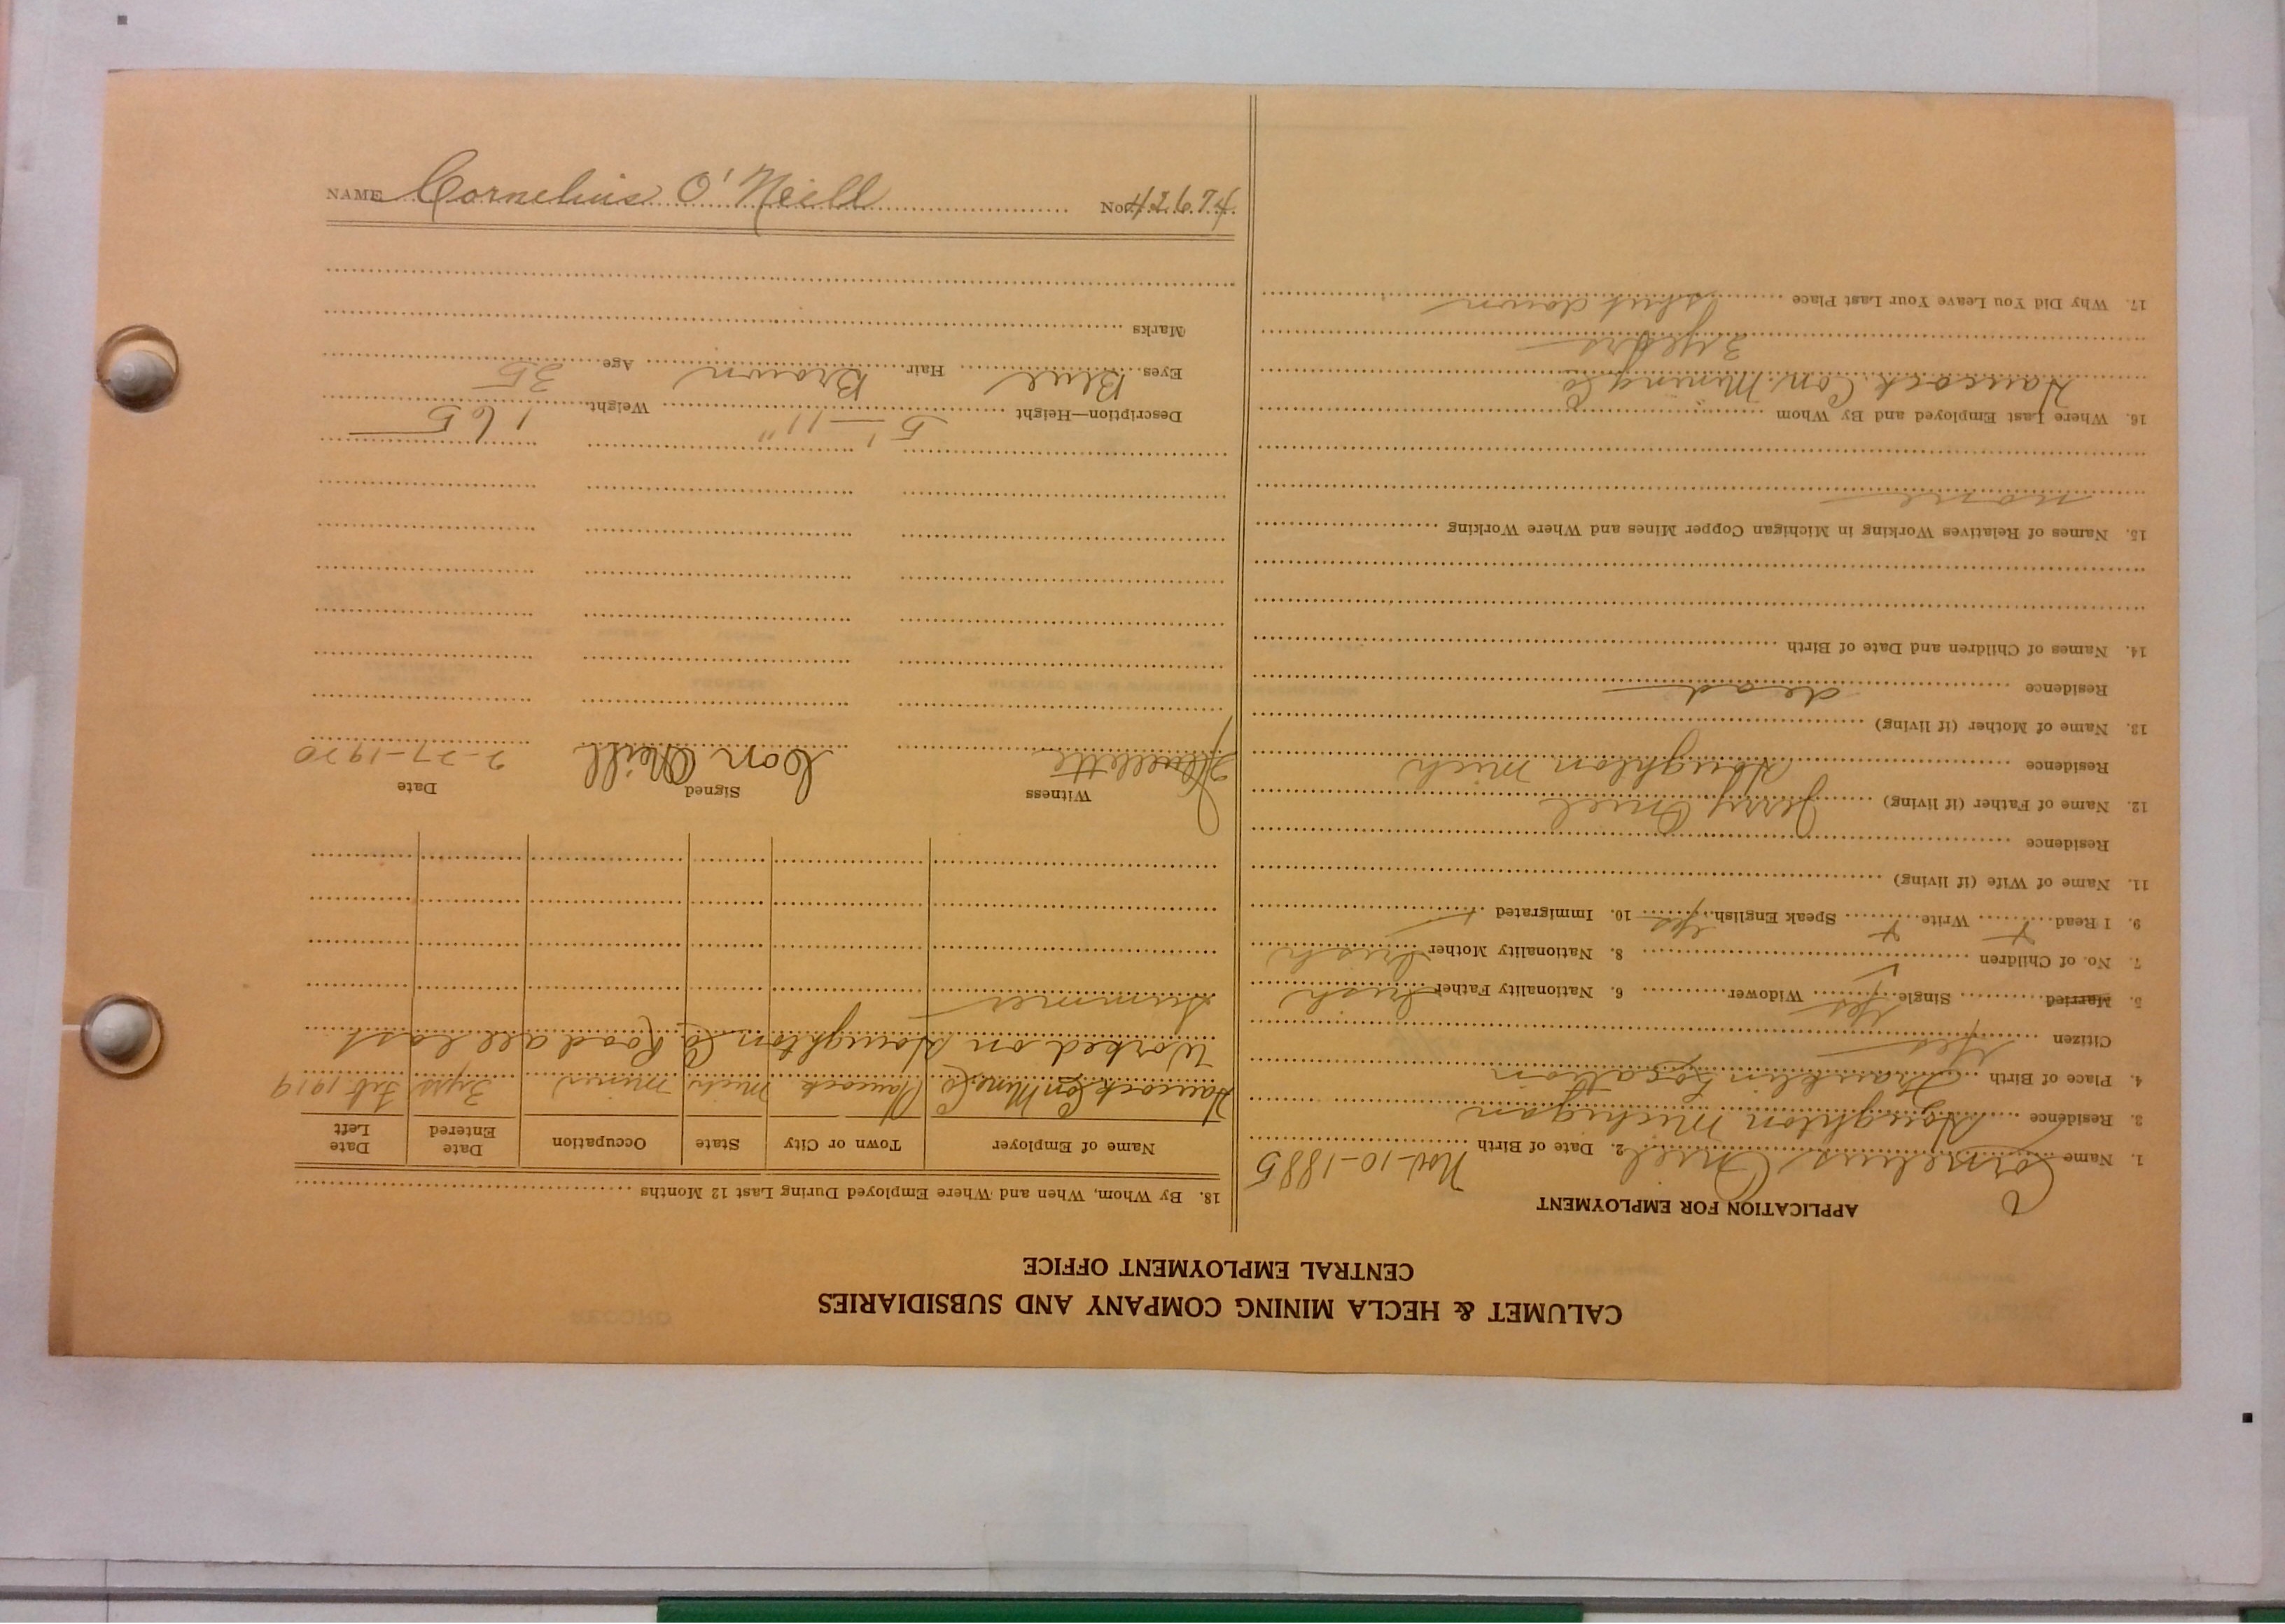 CALUMET & HECLA MINING COMPANY AND SUBSIDIARIES
CENTRAL EMPLOYMENT OFFICE
APPLICATION FOR EMPLOYMENT
1. Name Cornelius Oneil 2. Date of Birth Nov-10-1885
3. Residence Houghton Michigan
4. Place of Birth Franklin Location
Citizen Yes
5. Married Single Yes Widower 6. Nationality Father Irish
7. No. of Children 8. Nationality Mother Irish
9. I Read Write Speak English yes 10. Immigrated
11. Name of Wife (if living)
Residence
12. Name of Father (if living) Jerry Oneil
Residence Houghton Mich
13. Name of Mother (if living)
Residence dead
14. Names of Children and Date of Birth
15. Names of Relatives Working in Michigan Copper Mines and Where Working
none
16. Where Last Employed and By Whom
Hancock Con. Mining Co
3 years
17. Why Did You Leave Your Last Place shut down
18. By Whom, When and Where Employed During Last 12 Months
Name of Employer Town or City State Occupation Date Entered Date Left
Hancock Con Mine Co Hancock Mich miner 3 yrs Feb 1919
Worked on Houghton Co. Road all last
summer
Witness Signed Date
Con ONeill 2-27-1920
5'-11" 165
Description—Height Weight
Eyes Blue Hair Brown Age 35
Marks
NAME Cornelius O'Neill No. 42674
RECORD